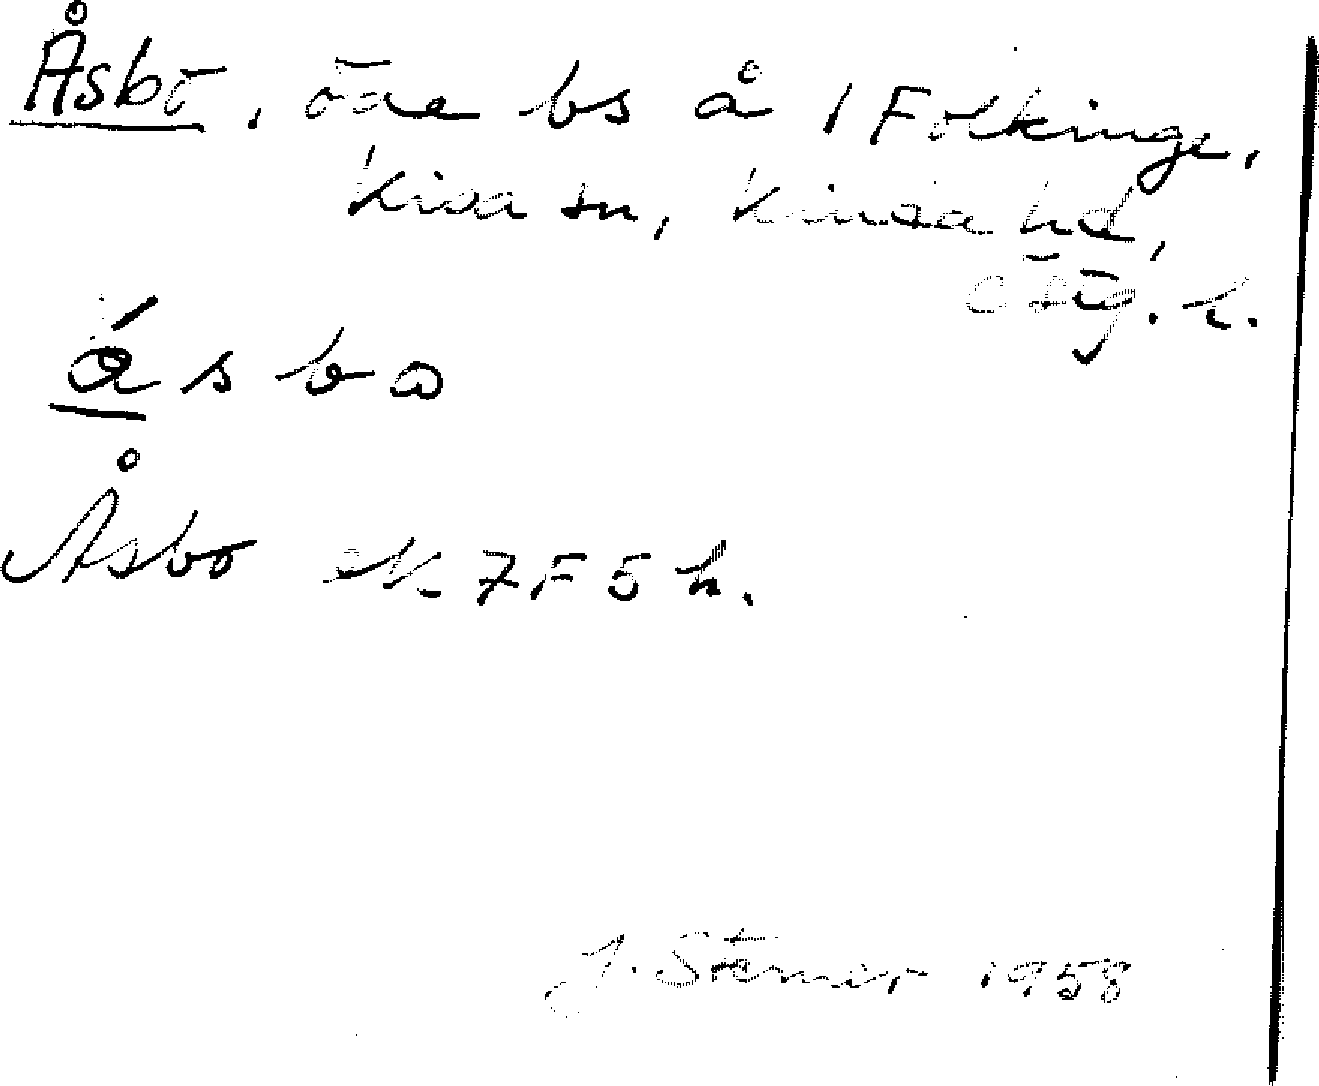 Åsbō, ōde bs å 1 Folkinge,
Kisa sn, Kinda hd,
Östg. l.
ǻsbo
Åsbo ek 7F5h.
J. Sterner 1958